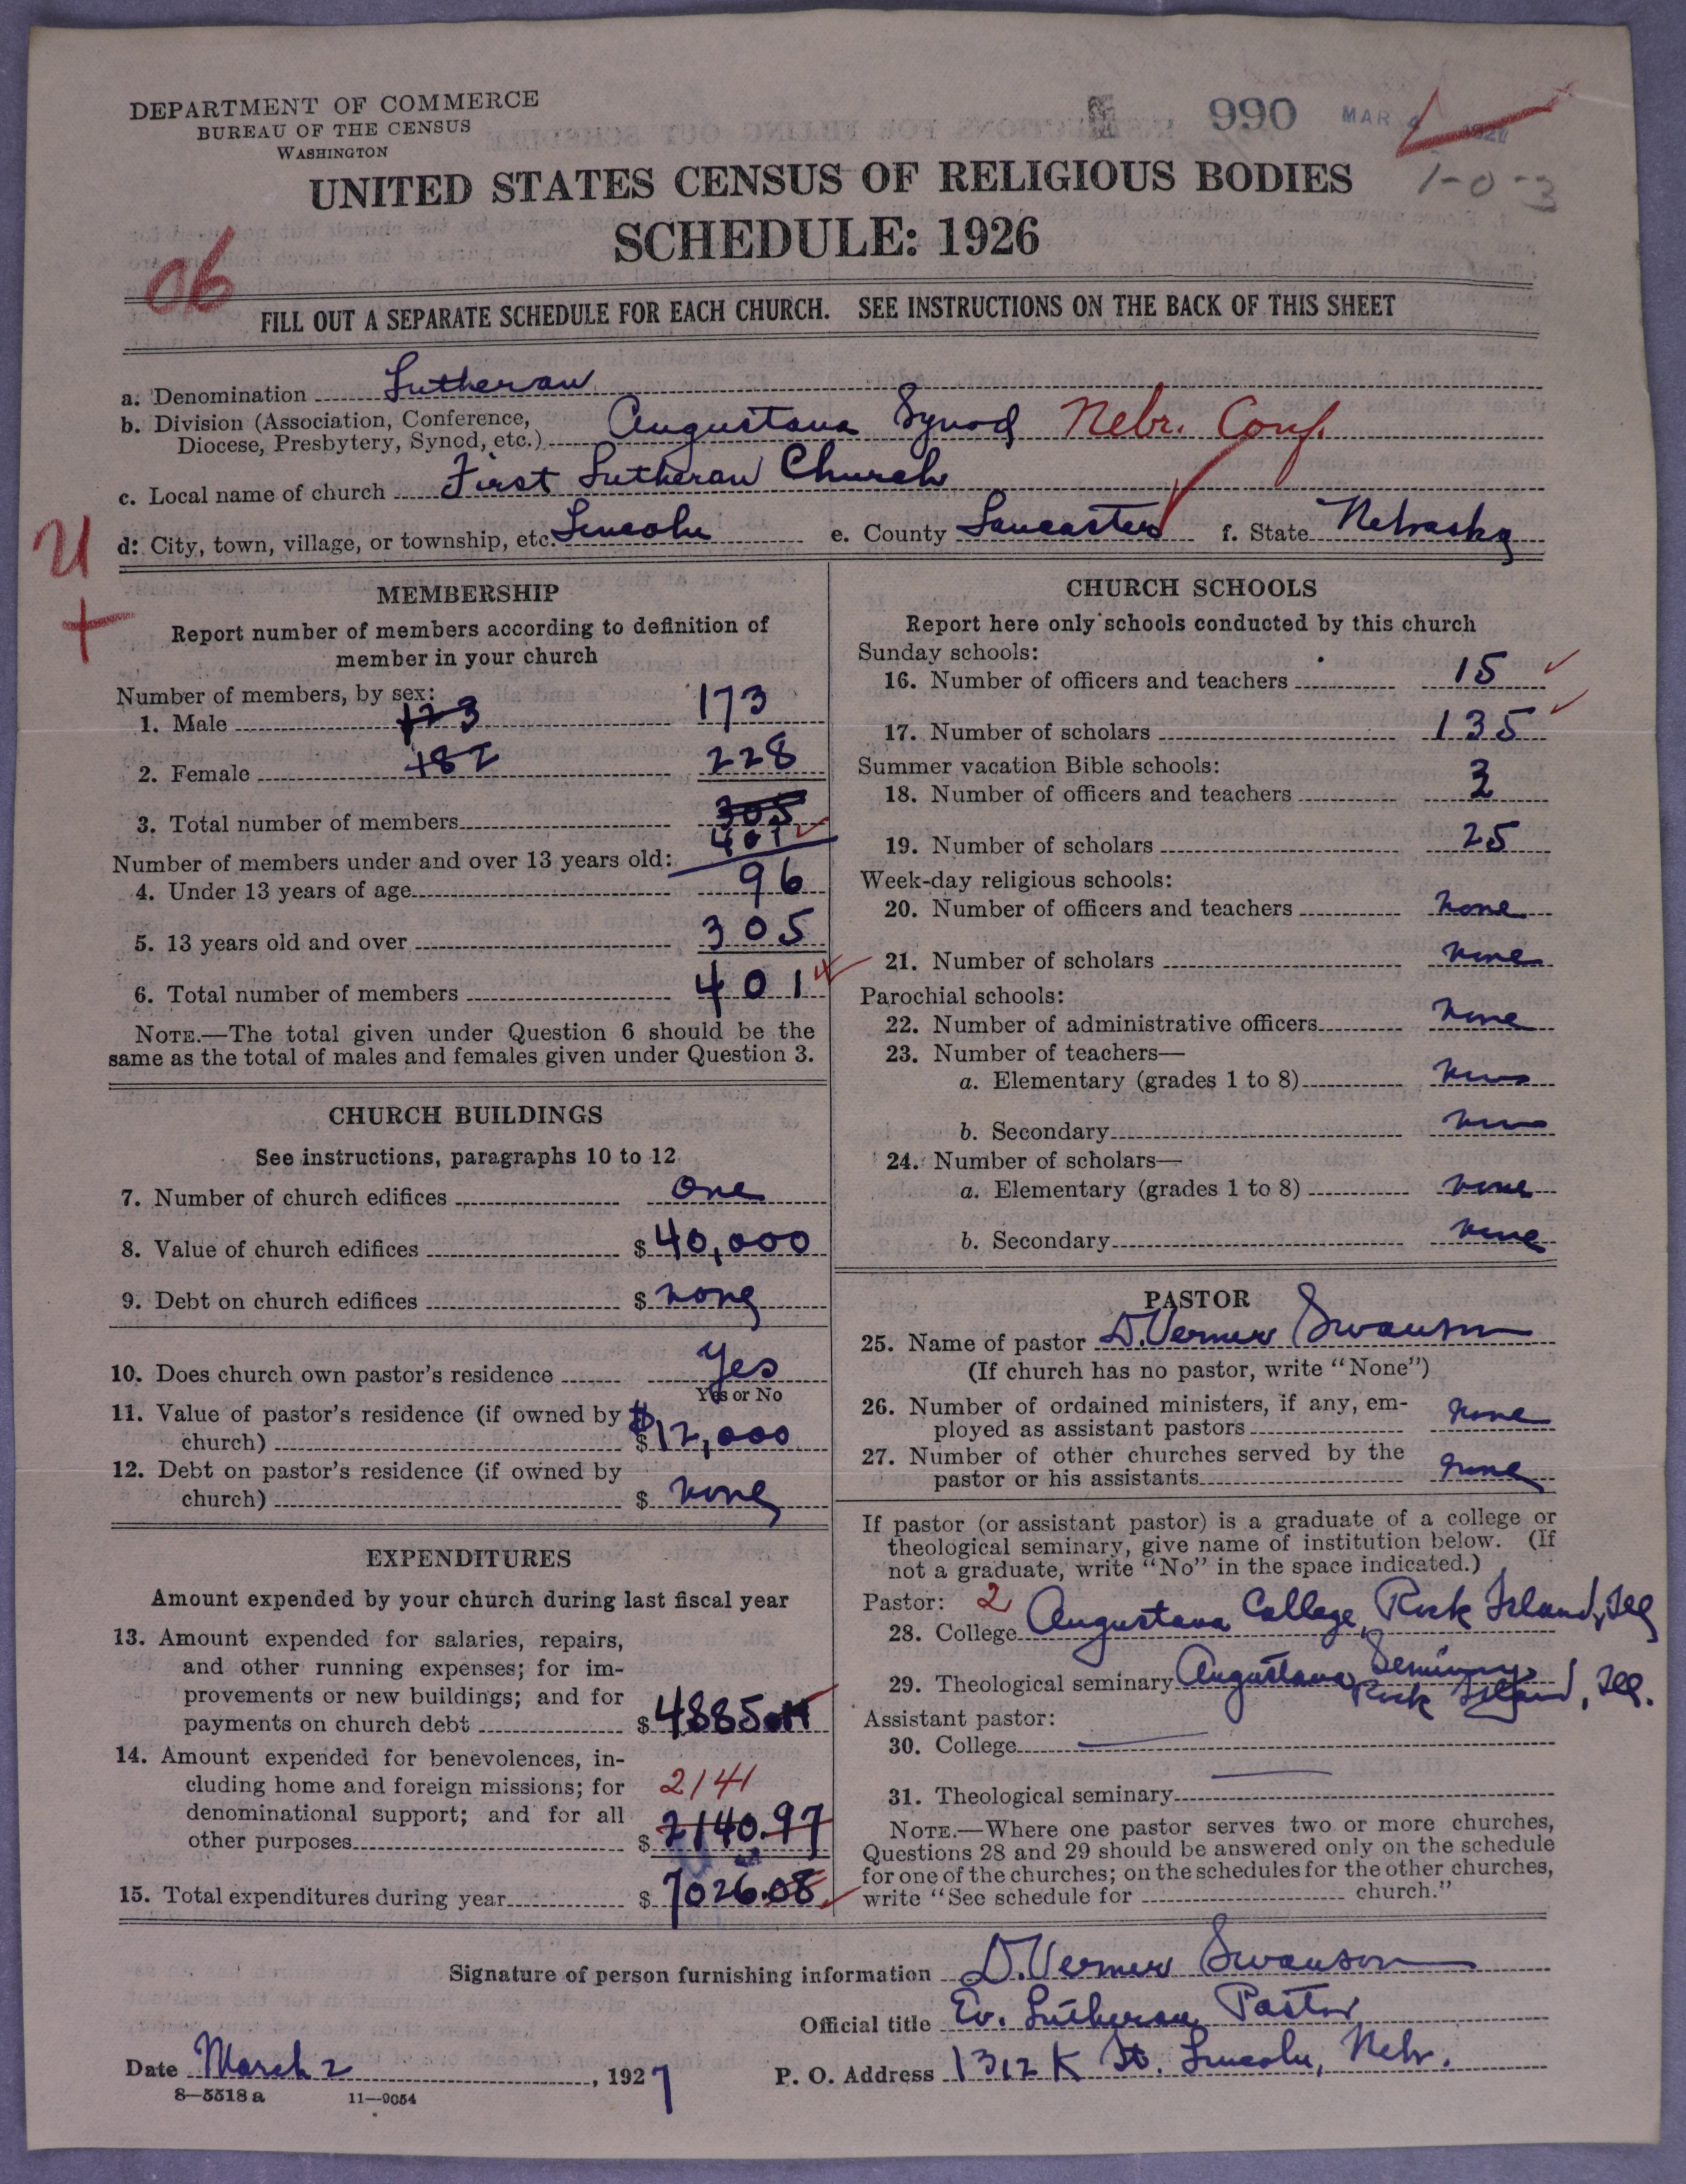 DEPARTMENT OF COMMERCE
BUREAU OF THE CENSUS
WASHINGTON
990 MAR
1-0-3
UNITED STATES CENSUS OF RELIGIOUS BODIES
SCHEDULE: 1926
06
FILL OUT A SEPARATE SCHEDULE FOR EACH CHURCH. SEE INSTRUCTIONS ON THE BACK OF THIS SHEET
a. Denomination Lutheran
b. Division (Association, Conference,
Diocese, Presbytery, Synod, etc.) Augustana Synod Nebr. Conf.
c. Local name of church First Lutheran Church
d. City, town, village, or township, etc. Lincoln e. County Lancaster f. State Nebraska
U
+
MEMBERSHIP
Report number of members according to definition of
member in your church
Number of members, by sex:
1. Male 123 173
2. Female 182 228
3. Total number of members 305
401
Number of members under and over 13 years old:
4. Under 13 years of age 96
5. 13 years old and over 305
6. Total number of members 401
NOTE.—The total given under Question 6 should be the
same as the total of males and females given under Question 3.
CHURCH BUILDINGS
See instructions, paragraphs 10 to 12
7. Number of church edifices One
8. Value of church edifices $ 40,000
9. Debt on church edifices $ none
10. Does church own pastor's residence Yes
Yes or No
11. Value of pastor's residence (if owned by
church) $ $12,000
12. Debt on pastor's residence (if owned by
church) $ none
EXPENDITURES
Amount expended by your church during last fiscal year
13. Amount expended for salaries, repairs,
and other running expenses; for im-
provements or new buildings; and for
payments on church debt $ 4885.11
14. Amount expended for benevolences, in-
cluding home and foreign missions; for 2141
denominational support; and for all
other purposes $ 2140.97
15. Total expenditures during year $ 7026.08
CHURCH SCHOOLS
Report here only schools conducted by this church
Sunday schools:
16. Number of officers and teachers 15
17. Number of scholars 135
Summer vacation Bible schools:
18. Number of officers and teachers 3
19. Number of scholars 25
Week-day religious schools:
20. Number of officers and teachers none
21. Number of scholars none
Parochial schools:
22. Number of administrative officers none
23. Number of teachers—
a. Elementary (grades 1 to 8) none
b. Secondary none
24. Number of scholars—
a. Elementary (grades 1 to 8) none
b. Secondary none
PASTOR
25. Name of pastor D. Verner Swanson
(If church has no pastor, write "None")
26. Number of ordained ministers, if any, em-
ployed as assistant pastors none
27. Number of other churches served by the
pastor or his assistants none
If pastor (or assistant pastor) is a graduate of a college or
theological seminary, give name of institution below. (If
not a graduate, write "No" in the space indicated.)
Pastor: 2
28. College Augustana College, Rock Island, Ill
29. Theological seminary Augustana Seminary
Rock Island, Ill.
Assistant pastor:
30. College
31. Theological seminary
NOTE.—Where one pastor serves two or more churches,
Questions 28 and 29 should be answered only on the schedule
for one of the churches; on the schedules for the other churches,
write "See schedule for church."
Signature of person furnishing information D. Verner Swanson
Official title Ev. Lutheran Pastor
Date March 2, 1927 P. O. Address 1312 K St. Lincoln, Nebr.
8—5518 a 11—9054